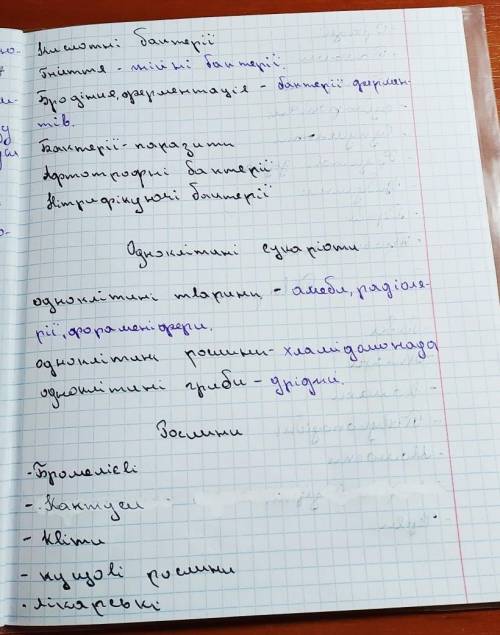 Кислотні бактерії
Гниття - гнійні бактерії.
Бродіння, ферментація - бактерії фермен-
тів.
Бактерії - паразити
Афтотрофні бактерії
Нітрифікуючі бактерії
Одноклітинні еукаріоти
одноклітині тварини, - амеби, радіоля-
рії, фораменіфери.
одноклітині рослини - хламідомонада
одноклітині гриби - дріджи.
Рослини
- Бромелієві
- Кактуси
- Квіти
- кущові рослини
- лікарські